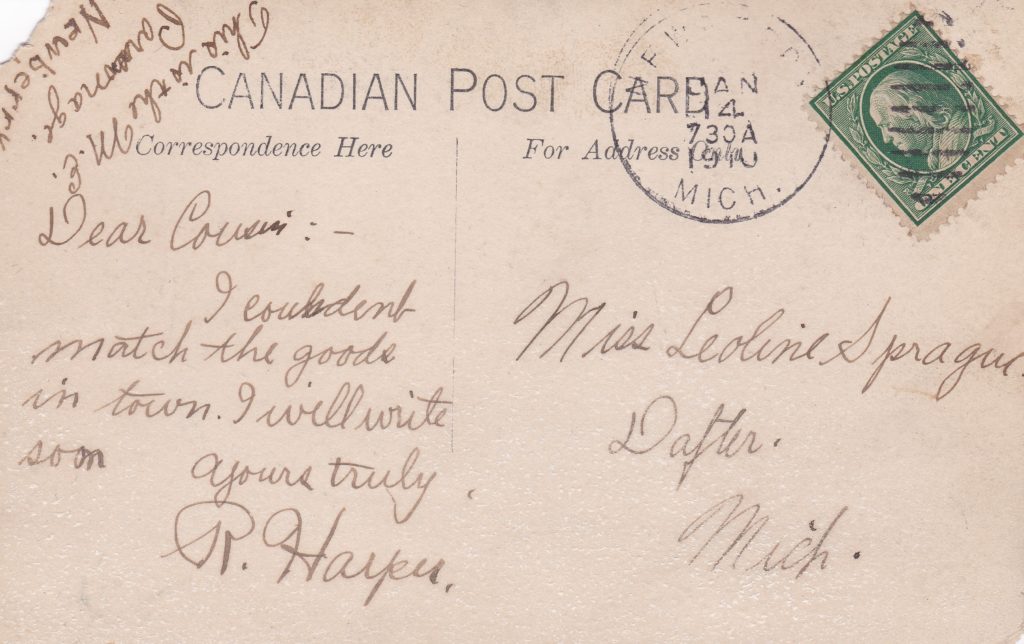 This is the M.E.
Parsonage.
Newberry
CANADIAN POST CARD
Correspondence Here
For Address Only
JAN
14
730A
1910
MICH.
U.S. POSTAGE
ONE CENT
Dear Cousin : -
I couldent
match the goods
in town. I will write
soon
yours truly.
R. Harper.
Miss Leoline Sprague.
Dafter.
Mich.